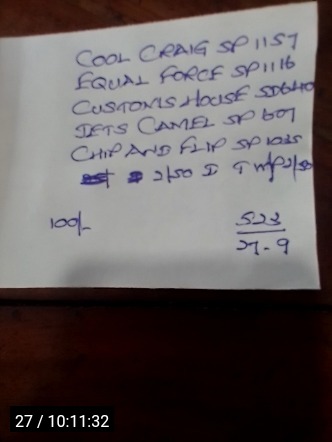 COOL CRAIG SP 1157
EQUAL FORCE SP 1116
CUSTOMS HOUSE SD640
JETS CAMEL SP 607
CHIP AND FLIP SP 1035
2/50 D T WP2/50
100/-
523
27-9
27 / 10:11:32